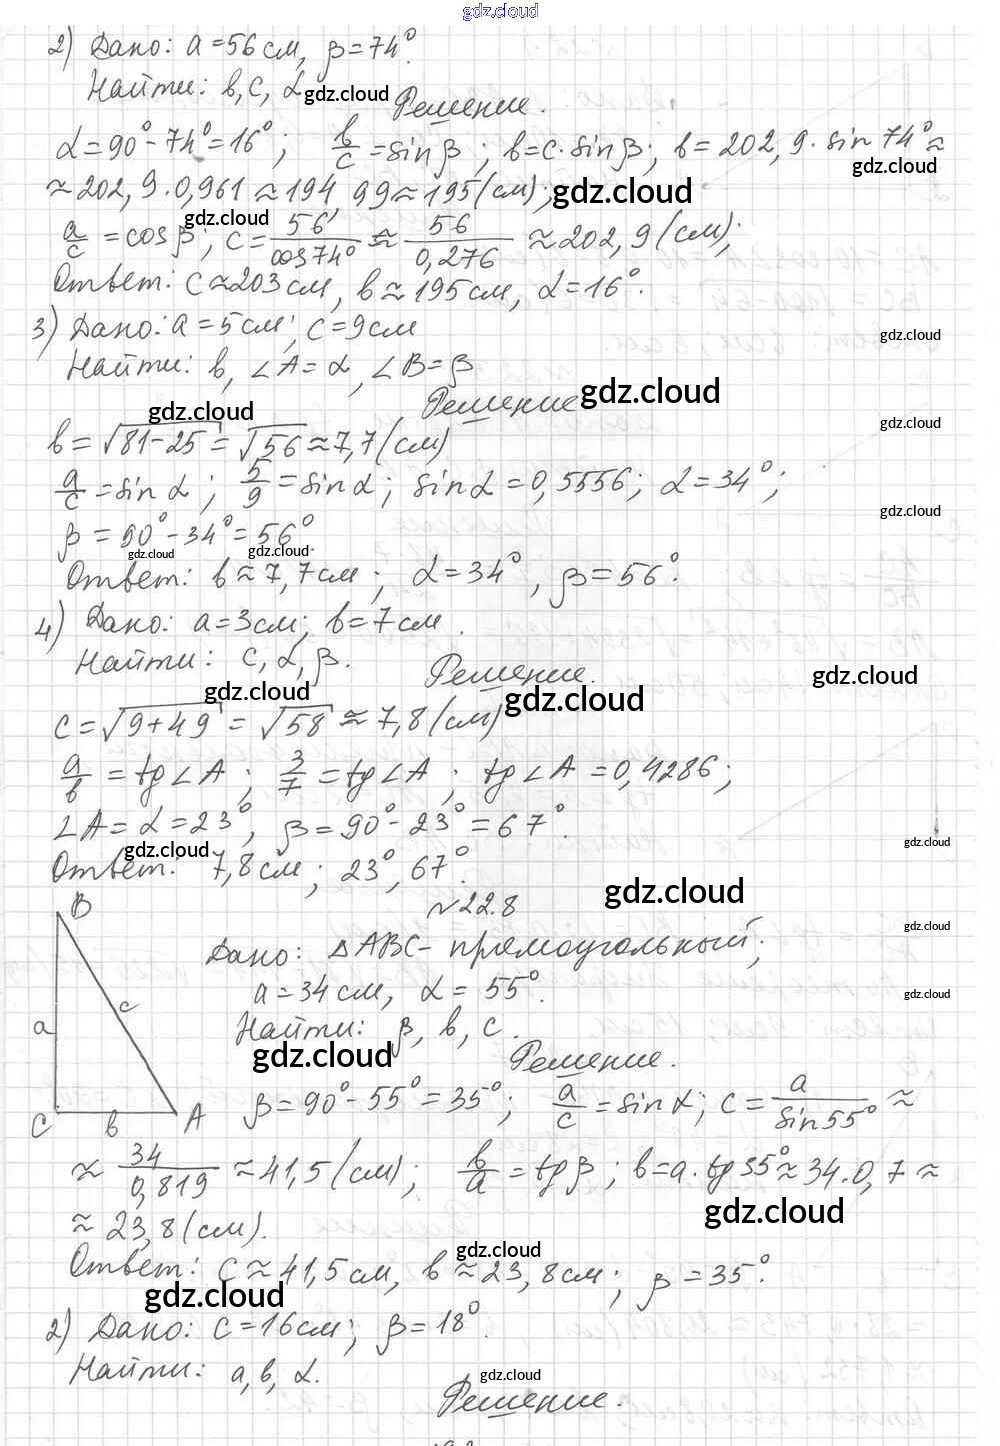 gdz.cloud
2) Дано: a=56 см, β=74°.
Найти: b, c, α gdz.cloud
Решение.
α=90°-74°=16°; b/c=sin β; b=c·sin β; b=202,9·sin 74°≈
gdz.cloud
≈202,9·0,961≈194,99≈195(см); gdz.cloud
gdz.cloud
a/c=cos β; c=56/cos74°≈56/0,276≈202,9(см);
Ответ: c≈203 см, b≈195 см, α=16°.
3) Дано: a=5 см; c=9 см
gdz.cloud
Найти: b, ∠A=α, ∠B=β
Решение gdz.cloud
gdz.cloud
gdz.cloud
b=√81-25=√56≈7,7(см)
a/c=sin α; 5/9=sin α; sin α=0,5556; α=34°;
gdz.cloud
β=90°-34°=56°
gdz.cloud gdz.cloud
Ответ: b≈7,7 см; α=34°, β=56°.
4) Дано: a=3 см; b=7 см.
Найти: c, α, β.
Решение. gdz.cloud
gdz.cloud gdz.cloud
c=√9+49=√58≈7,8(см)
a/b=tg∠A; 3/7=tg∠A; tg∠A=0,4286;
∠A=α=23°, β=90°-23°=67°.
gdz.cloud gdz.cloud
Ответ: 7,8 см; 23°, 67°.
gdz.cloud
№22.8
B
gdz.cloud
Дано: △ABC- прямоугольный;
a=34 см, α=55°.
gdz.cloud
a c
Найти: β, b, c.
gdz.cloud Решение.
C b A
β=90°-55°=35°; a/c=sin α; c=a/sin55°≈
≈34/0,819≈41,5(см); b/a=tg β; b=a·tg35°≈34·0,7≈
gdz.cloud
≈23,8(см).
gdz.cloud
Ответ: c≈41,5 см, b≈23,8 см; β=35°.
gdz.cloud
2) Дано: c=16 см; β=18°.
Найти: a, b, α.
gdz.cloud
Решение.